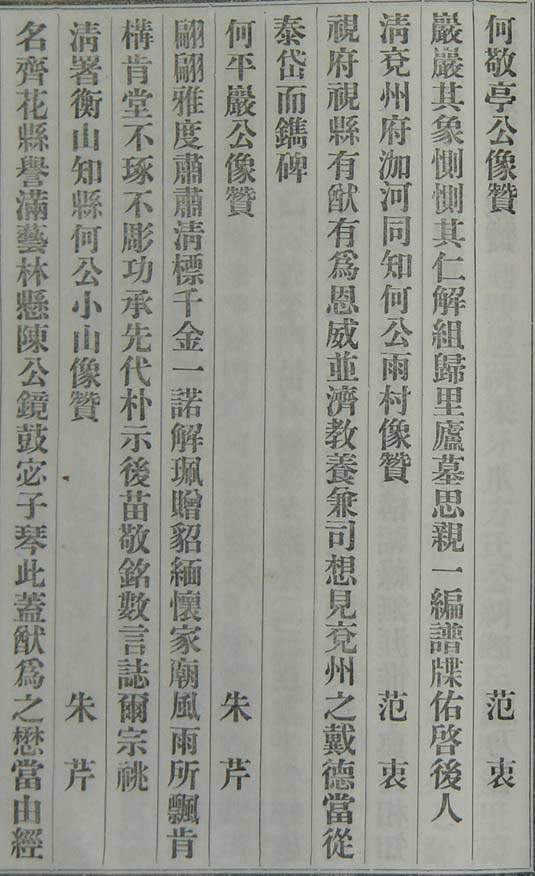 何敬亭公像贊 范衷
巖巖其象惻惻其仁解組歸里廬墓思親一編譜牒佑啓後人
清兗州府泇河同知何公雨村像贊 范衷
視府視縣有猷有爲恩威並濟教養兼司想見兗州之戴德當從
泰岱而鐫碑
何平巖公像贊 朱芹
翩翩雅度肅肅清標千金一諾解珮贈貂緬懷家廟風雨所飄肯
構肯堂不琢不彫功承先代朴示後苗敬銘數言誌爾宗祧
清署衡山知縣何公小山像贊 朱芹
名齊花縣譽滿藝林懸陳公鏡鼓宓子琴此蓋猷爲之懋當由經